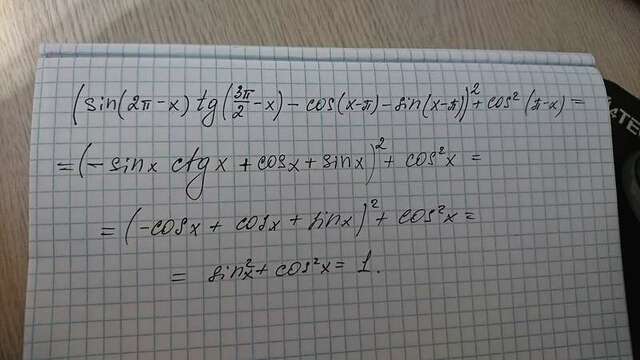 (sin(2π-x) tg(3π/2-x) - cos(x-π) - sin(x-π))² + cos²(π-x) =
= (-sinx ctgx + cosx + sinx)² + cos²x =
= (-cosx + cosx + sinx)² + cos²x =
= sin²x + cos²x = 1.